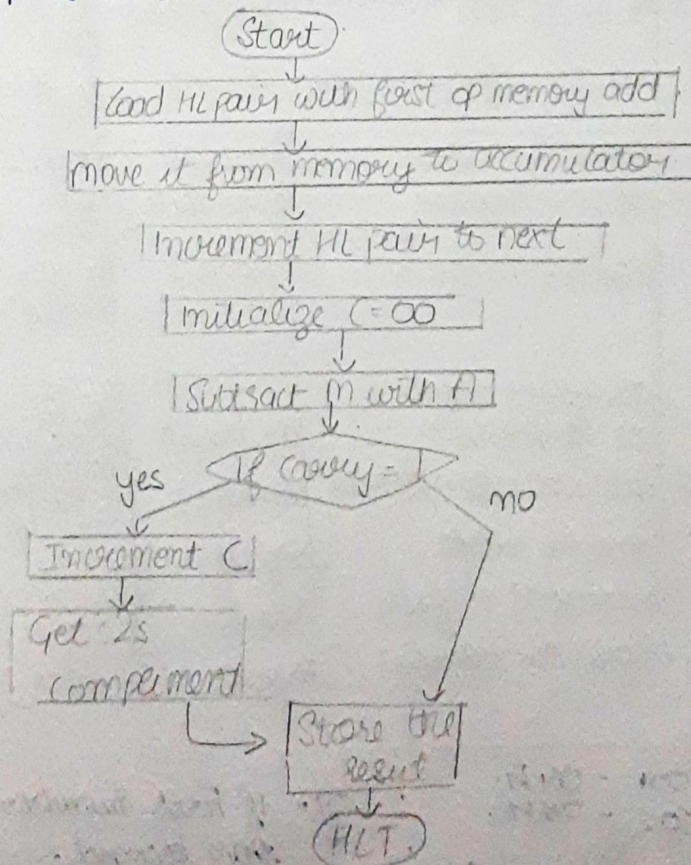 Start
Load HL pair with first op memory add
move it from memory to accumulator
Increment HL pair to next
initialize C=00
Subtract M with A
If carry = 1
yes
no
Increment C
Get 2s
compement
Store the
resut
HLT